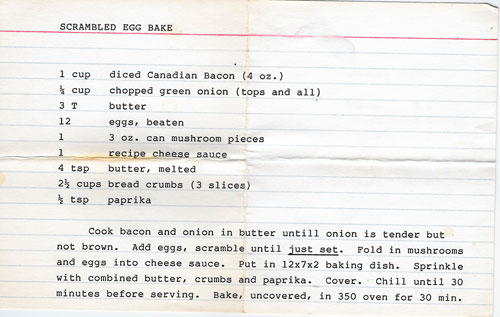 SCRAMBLED EGG BAKE
1 cup diced Canadian Bacon (4 oz.)
¼ cup chopped green onion (tops and all)
3 T butter
12 eggs, beaten
1 3 oz. can mushroom pieces
1 recipe cheese sauce
4 tsp butter, melted
2½ cups bread crumbs (3 slices)
½ tsp paprika
Cook bacon and onion in butter untill onion is tender but
not brown. Add eggs, scramble until just set. Fold in mushrooms
and eggs into cheese sauce. Put in 12x7x2 baking dish. Sprinkle
with combined butter, crumbs and paprika. Cover. Chill until 30
minutes before serving. Bake, uncovered, in 350 oven for 30 min.